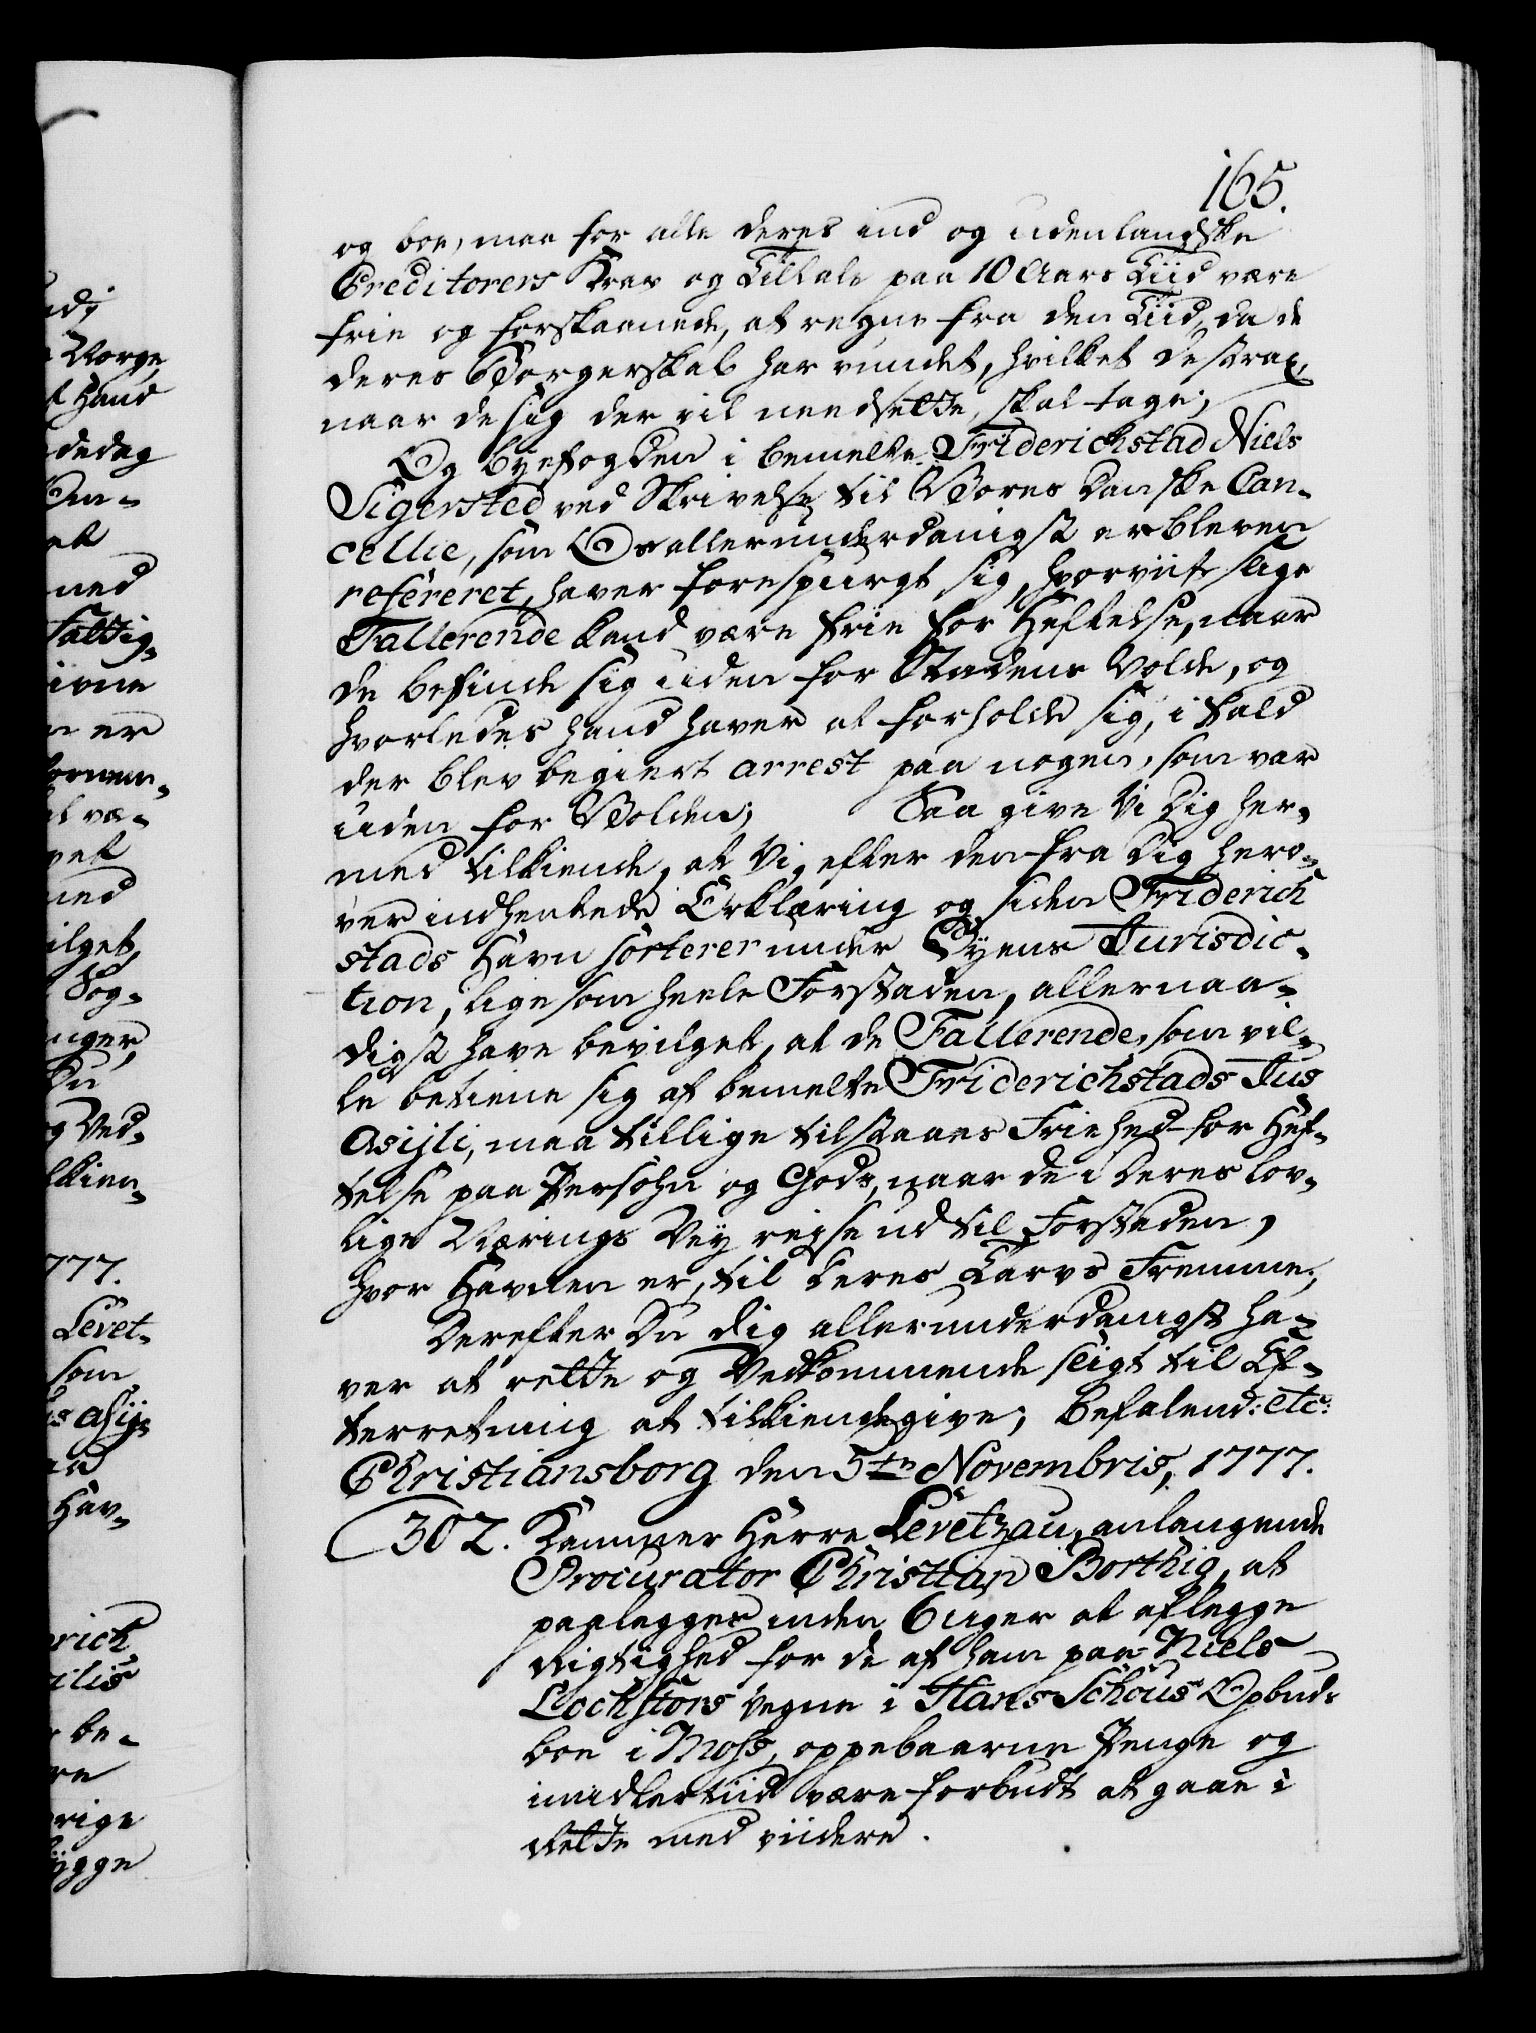 165.
og boe, maa for alle deres ind og udenlandske
Creditorers Krav og Tiltale paa 10 Aars Tiid være
frie og forskaanede, at regne fra den Tiid, da de
deres Borgerskab har vundet, hvilket de strax,
naar de sig der vil needsette, skal tage;
Og Byefogden i bemelte Friderichstad Niels
Sigersted ved Skrivelse til Vores Danske Can-
cellie, som Os allerunderdanigst er bleven
refereret, haver forespurgt sig, hvorviit slige
Fallerende kand være frie for Heftelse, naar
de befinde sig uden for Stadens Volde, og
hvorledes hand haver at forholde sig, i fald
der blev begiert arrest paa nogen, som var
uden for Volden; Saa give Vi Dig her-
med tilkiende, at Vi, efter den fra Dig hero-
ver indhentede Erklæring og siden Friderich
stads Havn sorterer under Byens Jurisdic-
tion, lige som heele Forstaden, allernaa-
digst have bevilget, at de Fallerende, som vil-
le betiene sig af bemelte Friderichstads Jus
Asijli, maa tillige tilstaaes Friehed for Hef-
telse paa Persohn og Gods, naar de i deres lov-
lige Nærings Vey reyse ud til Forstaden,
hvor Havnen er, til deres Tarvs Fremme;
Derefter Du Dig allerunderdanigst ha-
ver at rette og Vedkommende sligt til Ef-
terretning at tilkiendegive; Befalend: etc:
Christiansborg den 5te Novembris, 1777.
302. Kammer Herre Levetzau, anlangende
Procurator Christian Borthig, at
paalegges inden 6 uger at aflegge
Rigtighed for de af ham paa Niels
Lochstörs Vegne i Hans Schous Opbuds
boe i Moss, oppebaarne Penge og
imidlertiid være forbudt at gaae i
Rette med viidere.